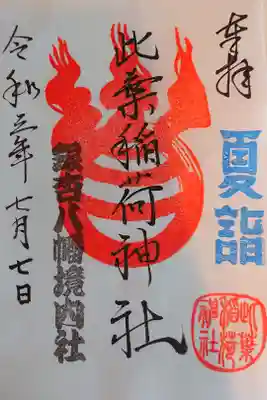 奉拝
夏詣
此葉
稲荷
神社
此葉稲荷神社
八幡境内社
令和三年七月七日